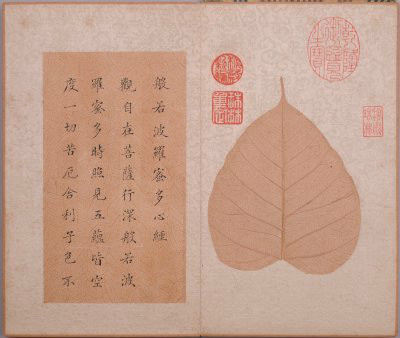 乾隆御覽之寶
般若波羅蜜多心經
觀自在菩薩行深般若波
羅蜜多時照見五蘊皆空
度一切苦厄舍利子色不